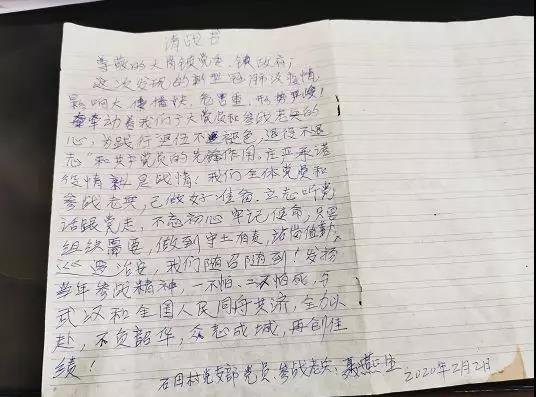 请战书
尊敬的大岗镇党委、镇政府:
这次发现的新型冠肺炎疫情,
影响大传播快,危害重,形势严峻!
牵动着我们广大党员和参战老兵的
心,为践行退伍不褪色,退役不退
志"和共产党员的先锋作用,庄严承诺
疫情就是战情!我们全体党员和
参战老兵,已做好准备。立志听党
话跟党走,不忘初心牢记使命,只要
组织需要,做到守土有责,站岗值勤,
治安,我们随召随到!发扬
当年参战精神,一不怕、二不怕死,与
武汉和全国人民同舟共济,全力以
赴,不负韶华,众志成城,再创佳
绩!
石田村党支部党员、参战老兵:聂燕生 2020年2月2日